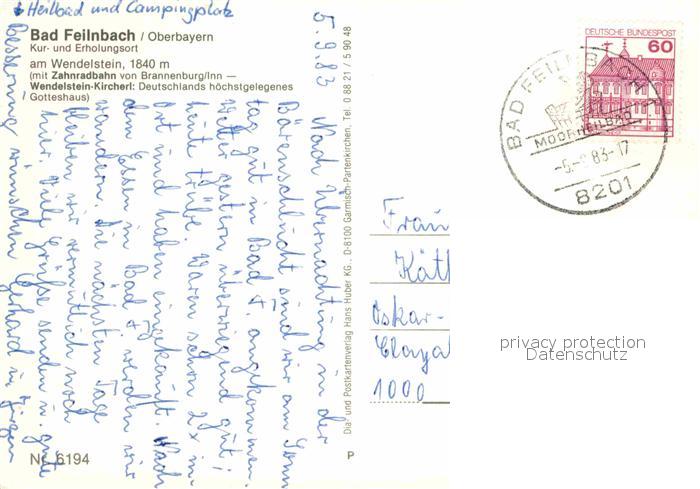 + Heilbad und Campingplatz
Bad Feilnbach / Oberbayern
Kur- und Erholungsort
am Wendelstein, 1840 m
(mit Zahnradbahn von Brannenburg/Inn —
Wendelstein-Kircherl: Deutschlands höchstgelegenes
Gotteshaus)
5.9.83
Nach Übernachtung in der
Bärenschlucht sind wir am Sonn
tag gut in Bad F. angekommen
Wetter gestern überwiegend gut;
heute trübe. Waren schon 2x im
Ort und haben eingekauft. Nach
dem Essen in Bad F. werden wir
wandern. Die nächsten Tage
bleiben wir vermutlich noch
hier. Viele Grüße senden u. gute
Besserung wünschen Gerhard u. Jürgen
Nr. 6194
Dia- und Postkartenverlag Hans Huber KG., D-8100 Garmisch-Partenkirchen, Tel. 0 88 21 / 5 90 48
P
DEUTSCHE BUNDESPOST
60
BAD FEILNBACH
MOORHEILBAD
-5.-9 83-17
8201
Frau
Kät
Oskar-
Claya
1000
privacy protection
Datenschutz